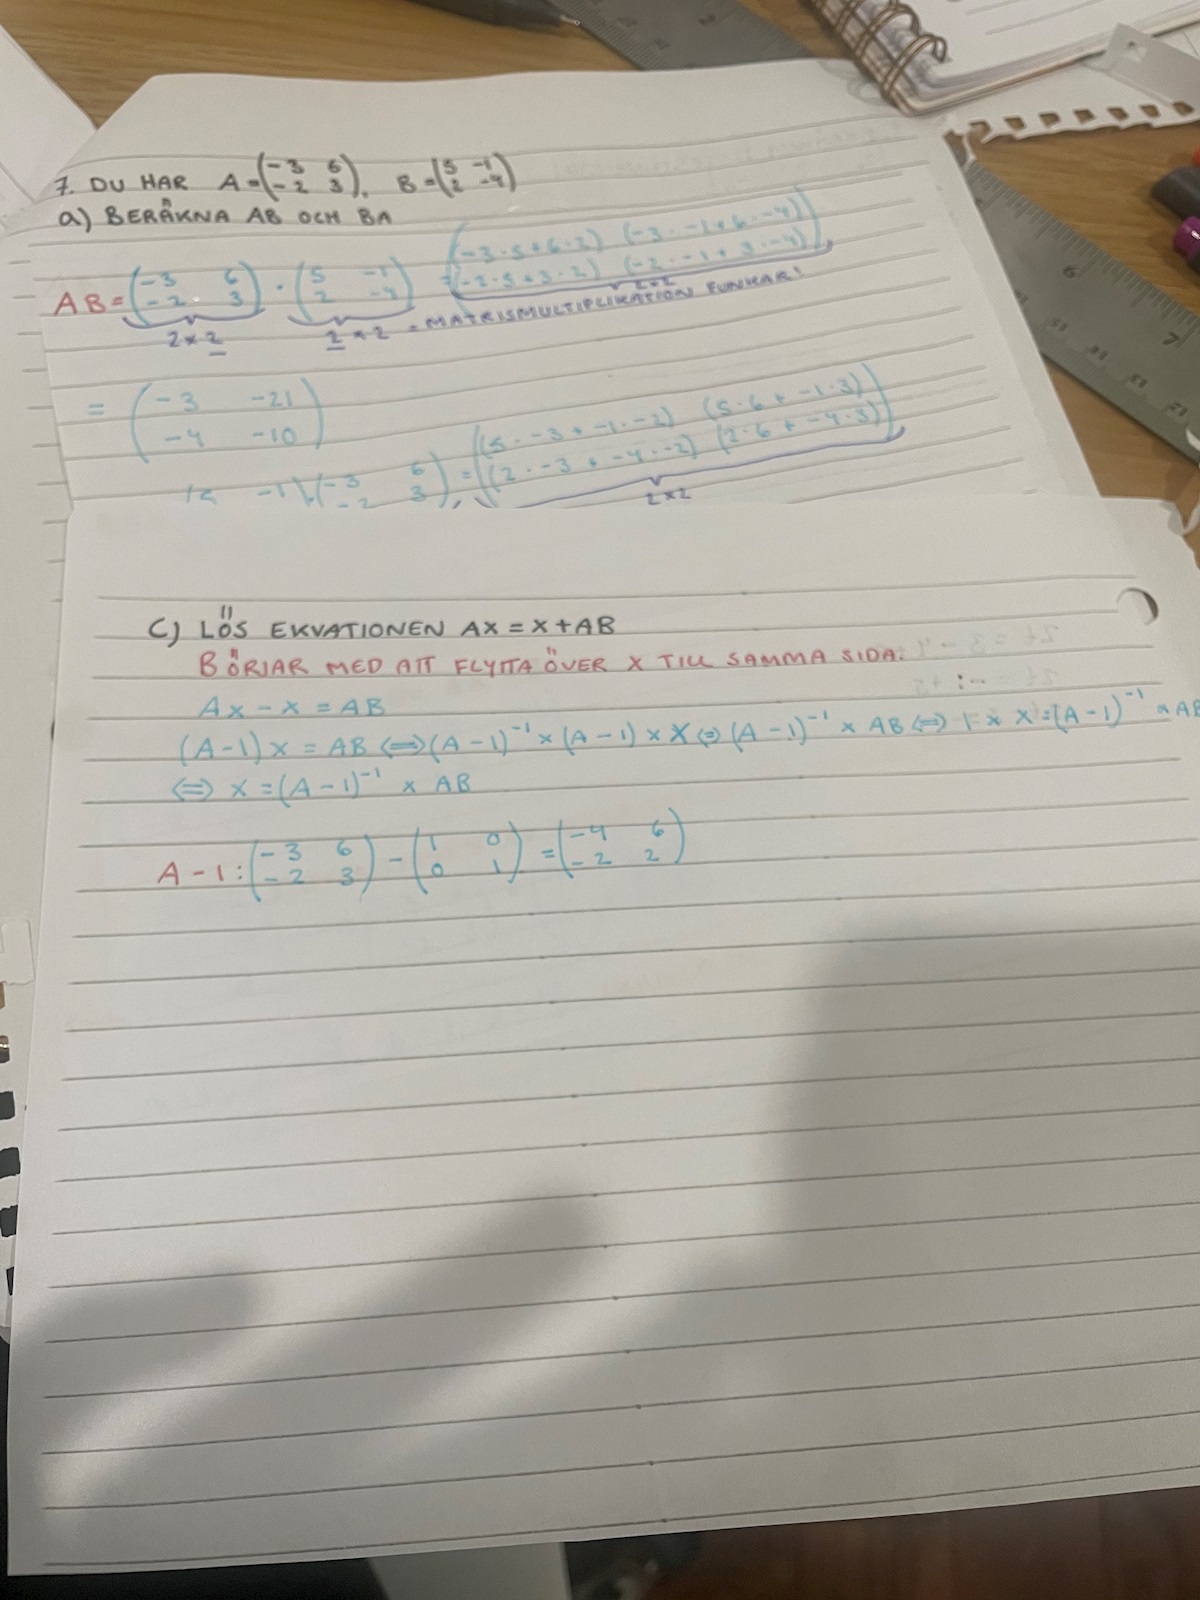 7. DU HAR A=(-3 6
-2 3), B=(5 -1
2 -4)
a) BERÄKNA AB OCH BA
AB=(-3 6
-2 3)·(5 -1
2 -4) =((-3·5+6·2) (-3·-1+6·-4)
(-2·5+3·2) (-2·-1+3·-4))
2×2 2×2 2×2 =MATRISMULTIPLIKATION FUNKAR!
= (-3 -21
-4 -10)
-1)·(-3 6
-2 3) =((5·-3+-1·-2) (5·6+-1·3)
(2·-3+-4·-2) (2·6+-4·3))
2×2
C) LÖS EKVATIONEN AX=X+AB
BÖRJAR MED ATT FLYTTA ÖVER X TILL SAMMA SIDA.
AX-X=AB
(A-1)X=AB⇔(A-1)⁻¹×(A-1)×X⇔(A-1)⁻¹×AB⇔1×X=(A-1)⁻¹×AB
⇔X=(A-1)⁻¹×AB
A-1:(-3 6
-2 3)-(1 0
0 1)=(-4 6
-2 2)
6
7